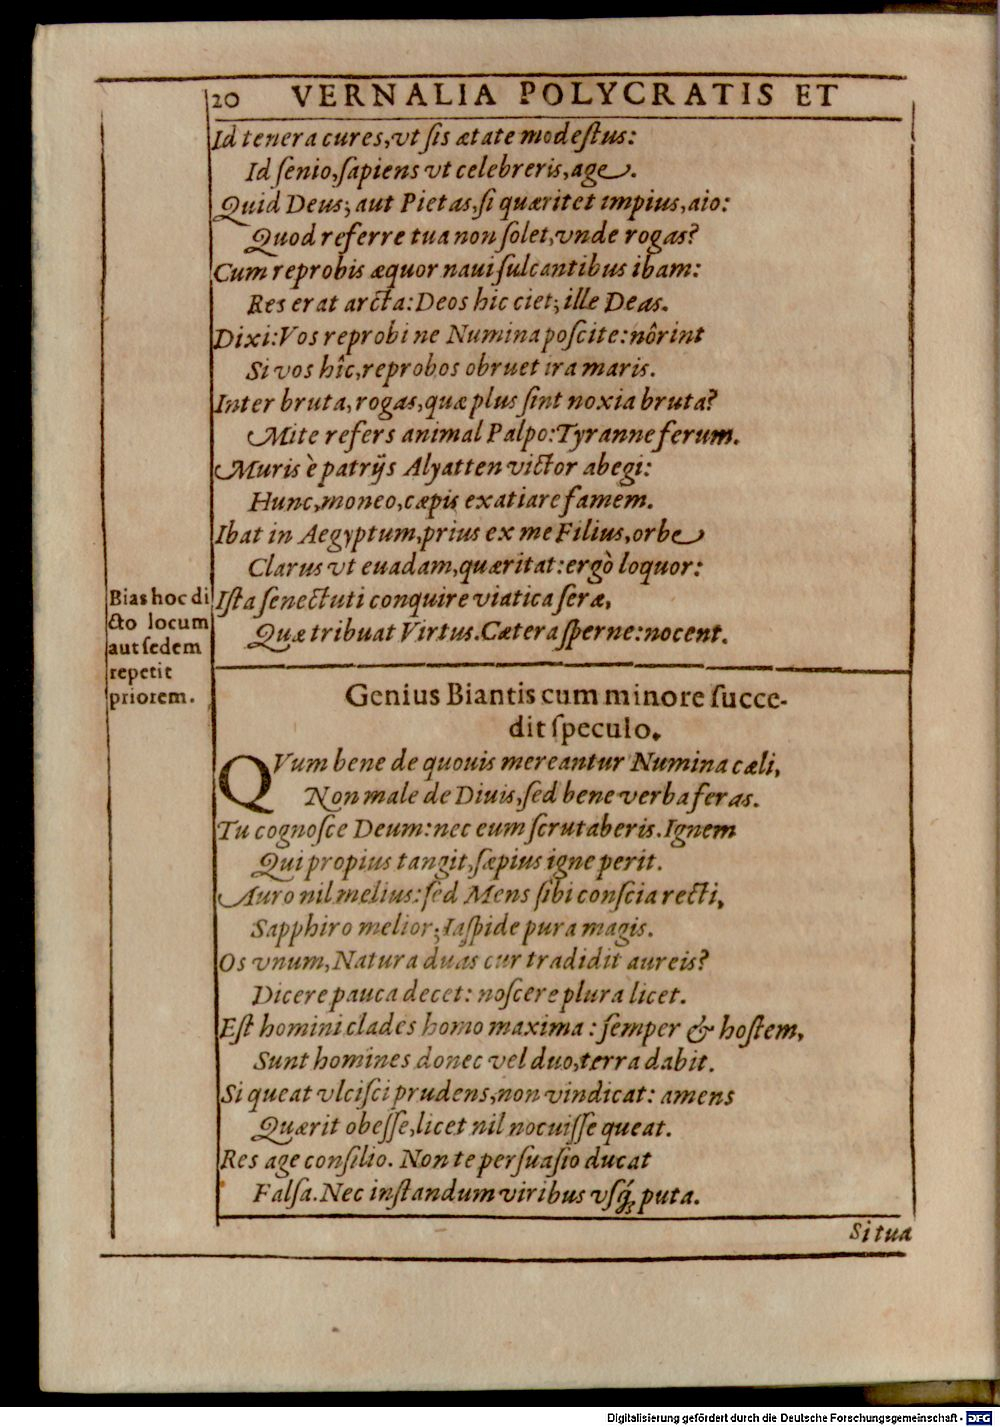 20 VERNALIA POLYCRATIS ET
Id tenera cures, vt ſis ætate modeſtus:
Id ſenio, ſapiens vt celebreris, age.
Quid Deus; aut Pietas, ſi quærit et impius, aio:
Quod referre tua non ſolet, vnde rogas?
Cum reprobis æquor naui ſulcantibus ibam:
Res erat arcta: Deos hic ciet; ille Deas.
Dixi: Vos reprobi ne Numina poſcite: nôrint
Si vos hîc, reprobos obruet ira maris.
Inter bruta, rogas, quæ plus ſint noxia bruta?
Mite refers animal Palpo: Tyranne ferum.
Muris è patrijs Alyatten victor abegi:
Hunc, moneo, cæpis exatiare famem.
Ibat in Aegyptum, prius ex me Filius, orbe
Clarus vt euadam, quæritat: ergò loquor:
Iſta ſenectuti conquire viatica ſeræ,
Quæ tribuat Virtus. Cætera ſperne: nocent.
Bias hoc di
cto locum
aut ſedem
repetit
priorem.
Genius Biantis cum minore ſucce-
dit ſpeculo.
QVum bene de quouis mereantur Numina cæli,
Non male de Diuis, ſed bene verba feras.
Tu cognoſce Deum: nec eum ſcrutaberis. Ignem
Qui propius tangit, ſæpius igne perit.
Auro nil melius: ſed Mens ſibi conſcia recti,
Sapphiro melior; Iaſpide pura magis.
Os vnum, Natura duas cur tradidit aureis?
Dicere pauca decet: noſcere plura licet.
Eſt homini clades homo maxima: ſemper & hoſtem,
Sunt homines donec vel duo, terra dabit.
Si queat vlciſci prudens, non vindicat: amens
Quærit obeſſe, licet nil nocuiſſe queat.
Res age conſilio. Non te perſuaſio ducat
Falſa. Nec inſtandum viribus vſq́; puta.
Si tua
Digitalisierung gefördert durch die Deutsche Forschungsgemeinschaft - DFG